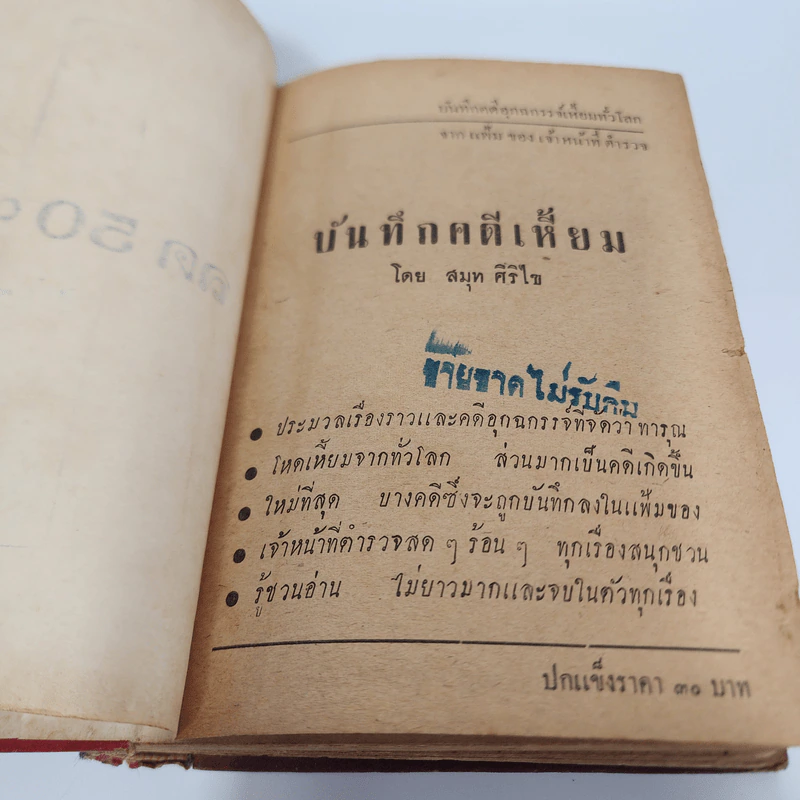 บันทึกคดีอุกฉกรรจ์เหี้ยมทั่วโลก
จาก แฟ้ม ของ เจ้าหน้าที่ ตำรวจ
บันทึกคดีเหี้ยม
โดย สมุท ศิริไข
ขายขาดไม่รับคืน
● ประมวลเรื่องราวและคดีอุกฉกรรจ์ที่จัดว่า ทารุณ
● โหดเหี้ยมจากทั่วโลก ส่วนมากเป็นคดีเกิดขึ้น
● ใหม่ที่สุด บางคดีซึ่งจะถูกบันทึกลงในแฟ้มของ
● เจ้าหน้าที่ตำรวจสด ๆ ร้อน ๆ ทุกเรื่องสนุกชวน
● รู้ชวนอ่าน ไม่ยาวมากและจบในตัวทุกเรื่อง
ปกแข็งราคา ๓๐ บาท